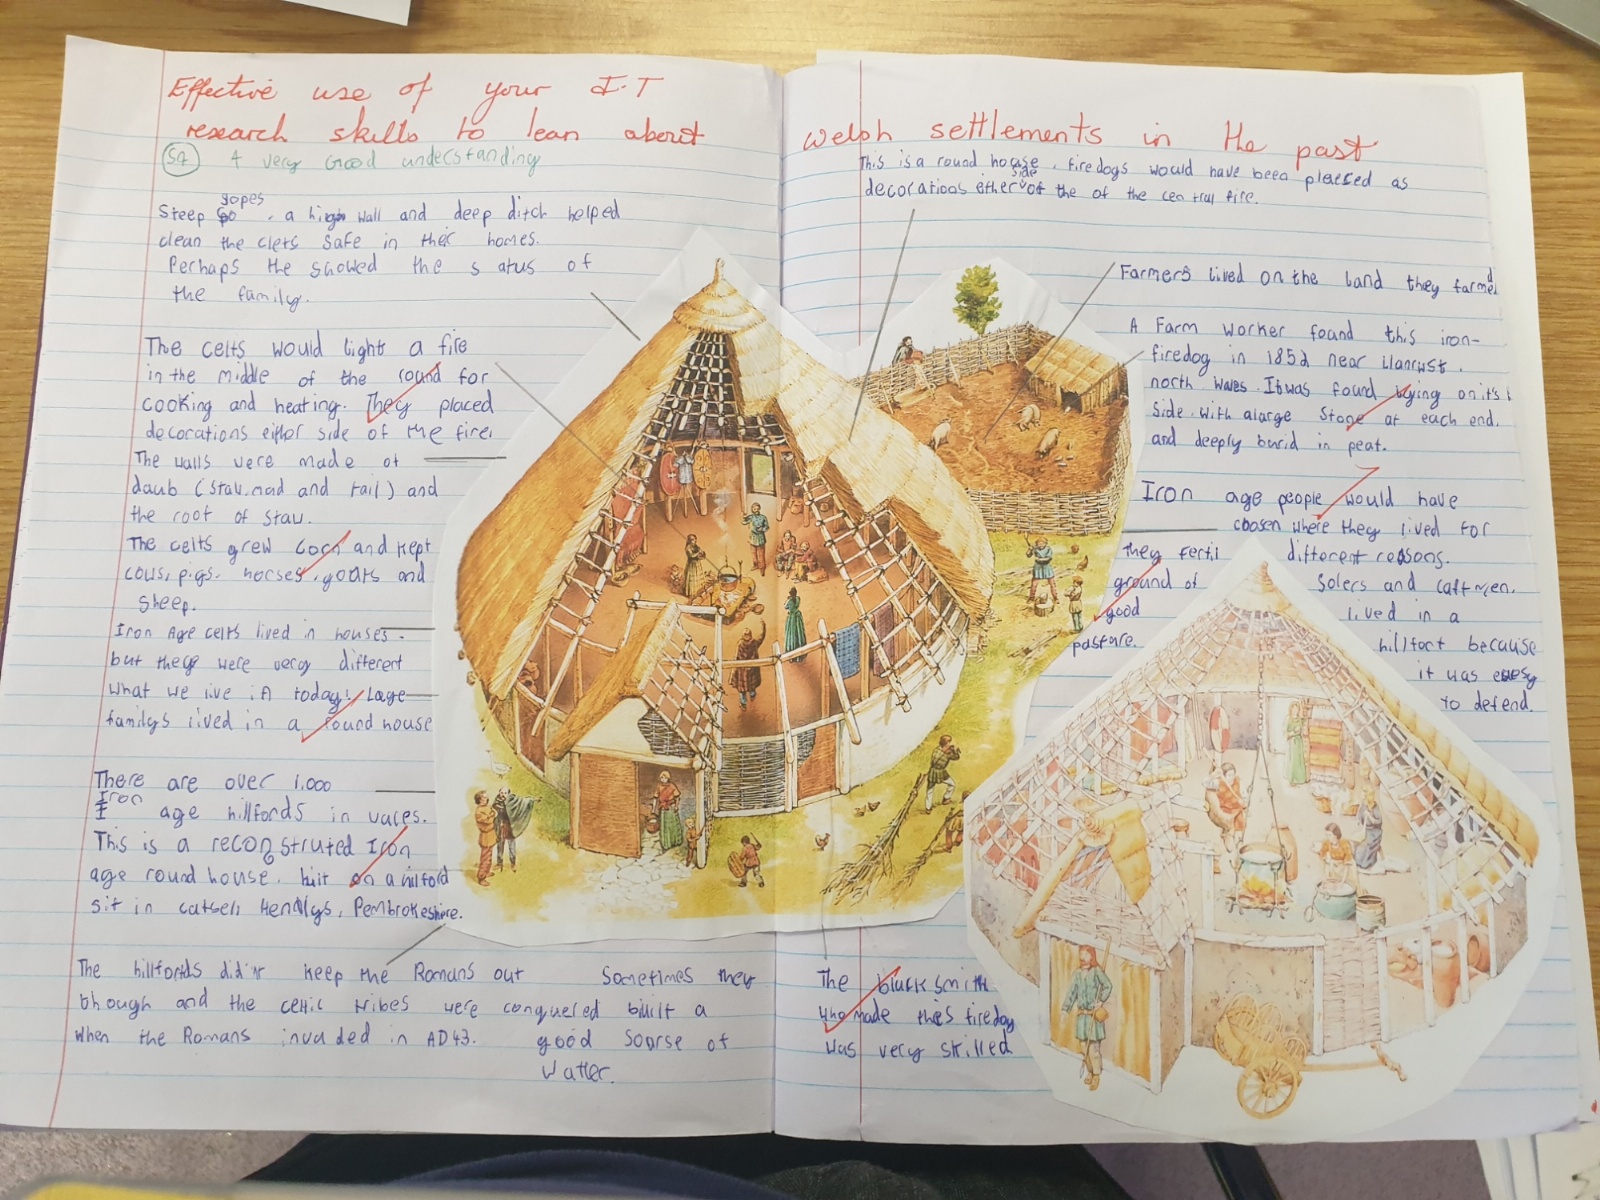 Effective use of your I.T
research skills to lean about
welsh settlements in the past
A very Good understanding
gopes
Steep . a high wall and deep ditch helped
clean the clets safe in their homes.
Perhaps the showed the s atus of
the family.
The celts would light a fire
in the middle of the round for
cooking and heating. They placed
decorations either side of the fire.
The walls were made of
daub (Staw.mad and tail) and
the root of staw.
The celts grew corn and kept
cous, pigs. horses, goats and
Sheep.
Iron Age celts lived in houses.
but they were very different
what we live in today. Lage
familys lived in a round house
There are over 1.000
Iron
age hillfords in vales.
This is a reconstruted Iron
age round house. buit on a hilford
sit in catsell Hendlys, Pembrokeshire.
The hillfords did'nt keep the Romans out
though and the celtic tribes were conquered
when the Romans invaded in AD43.
Sometimes they
built a
good soorse of
watter.
This is a round house. firedogs would have been placed as
side
decorations either of the of the central fire.
Farmers lived on the land they farmed
A Farm worker foand this iron-
firedog in 1852 near Llanrwst.
north wales. It was found lying on it's
side. with a large stone at each end.
and deeply burid in peat.
Iron age people would have
chosen where they lived for
they fertil different reasons.
ground of Solers and caftmen.
good lived in a
pasture. hillfort because
it was easy
to defend.
The black smith
who made this firedog
was very skilled